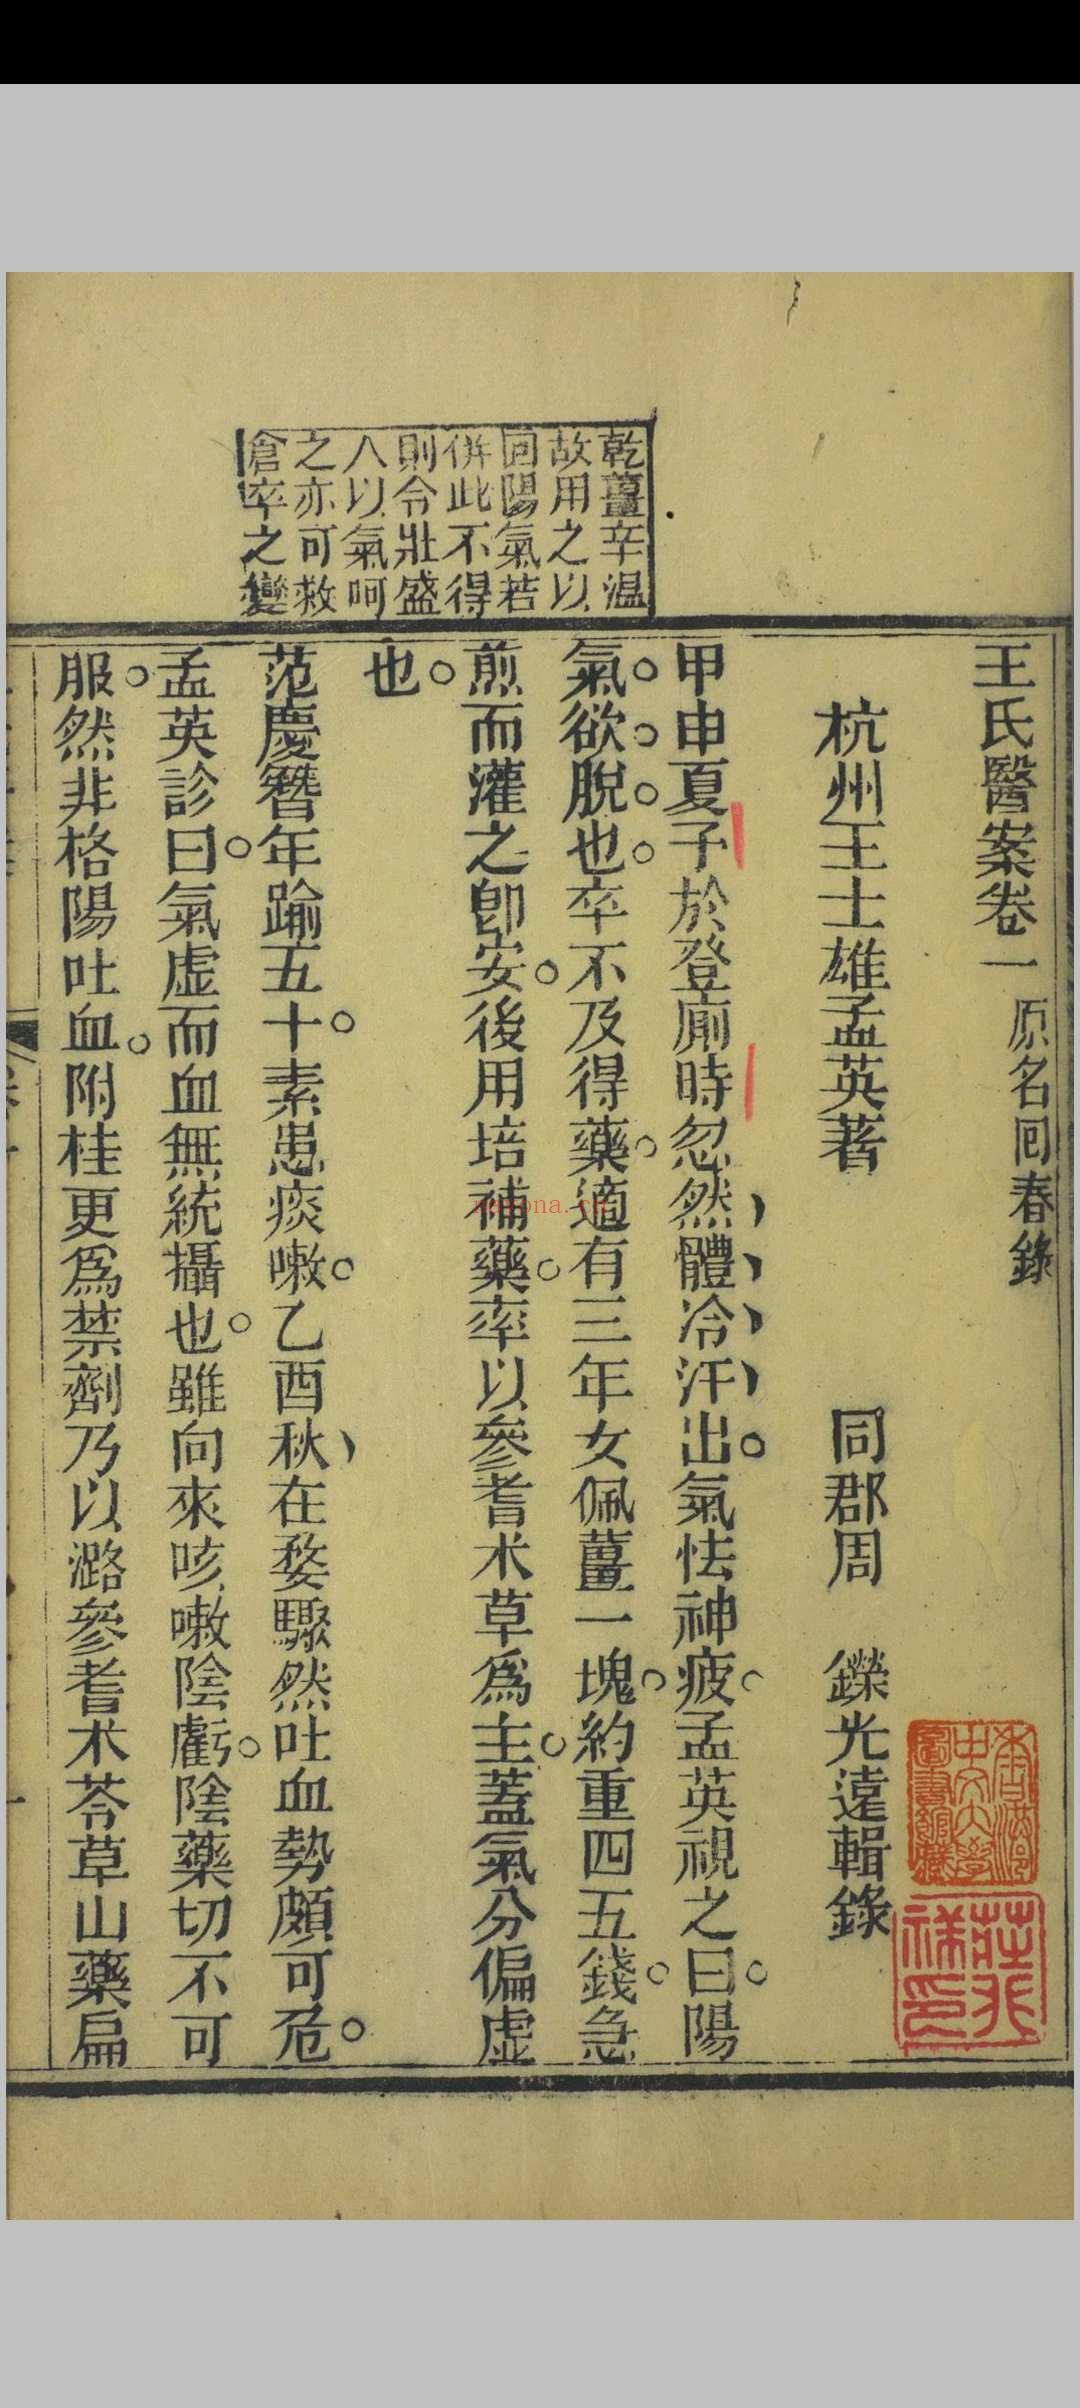 王氏醫案卷一 原名回春錄
杭州王士雄孟英著 同郡周 鑅光遠輯錄
乾薑辛温
故用之以
回陽氣若
倂此不得
則令壯盛
人以氣呵
之亦可救
倉卒之變
甲申夏子於登廁時忽然體冷汗出氣怯神疲孟英視之曰陽
氣欲脫也卒不及得藥適有三年女佩薑一塊約重四五錢急
煎而灌之卽安後用培補藥率以參耆朮草爲主蓋氣分偏虛
也
范慶簪年踰五十素患痰嗽乙酉秋在婺驟然吐血勢頗可危
孟英診曰氣虛而血無統攝也雖向來咳嗽陰虧陰藥切不可
服然非格陽吐血附桂更爲禁劑乃以潞參耆朮苓草山藥扁
香港
中文大學
圖書館藏